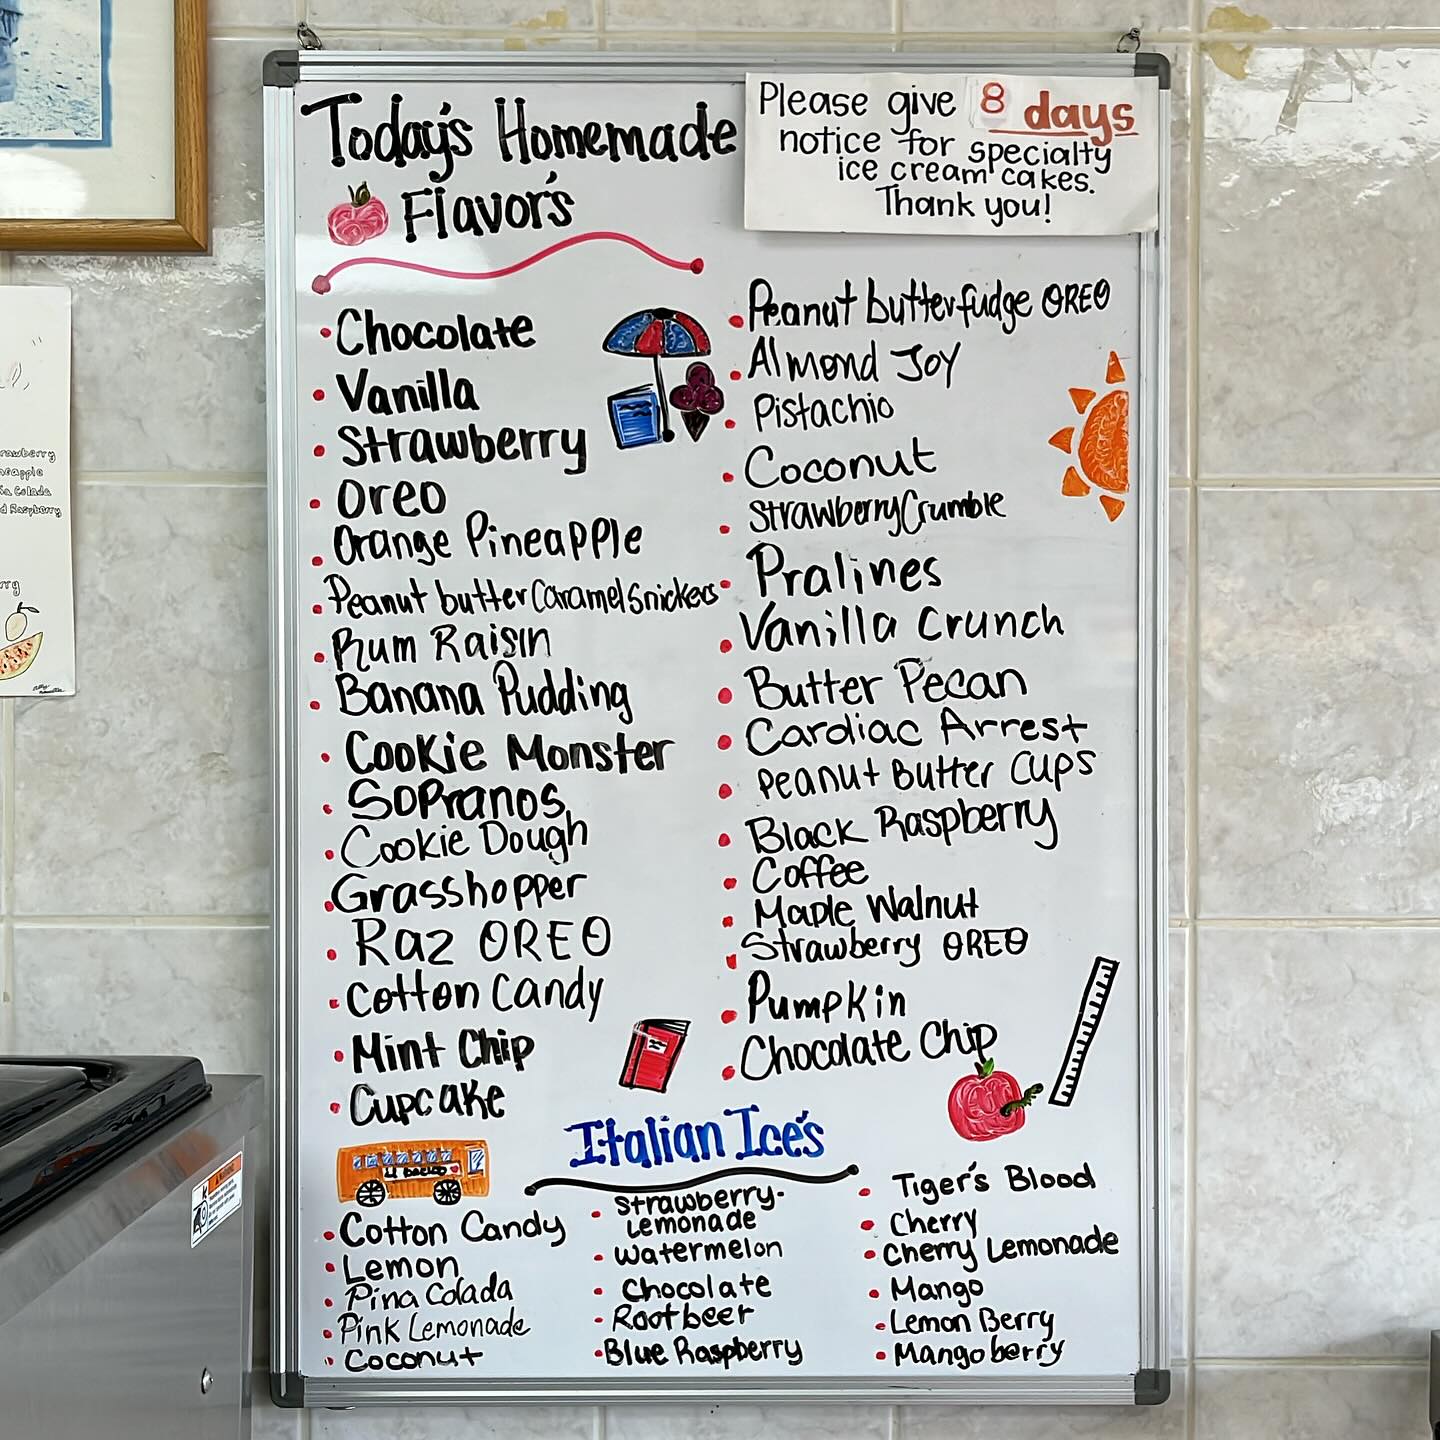 Today's Homemade
Flavor's
Please give 8 days
notice for specialty
ice cream cakes.
Thank you!
Chocolate
Vanilla
Strawberry
Oreo
Orange Pineapple
Peanut butter Caramel Snickers
Rum Raisin
Banana Pudding
Cookie Monster
Sopranos
Cookie Dough
Grasshopper
Raz OREO
Cotton Candy
Mint Chip
Cupcake
Peanut butter fudge OREO
Almond Joy
Pistachio
Coconut
Strawberry Crumble
Pralines
Vanilla Crunch
Butter Pecan
Cardiac Arrest
Peanut Butter Cups
Black Raspberry
Coffee
Maple Walnut
Strawberry OREO
Pumpkin
Chocolate Chip
Italian Ice's
Cotton Candy
Lemon
Pina Colada
Pink Lemonade
Coconut
Strawberry-
Lemonade
Watermelon
Chocolate
Rootbeer
Blue Raspberry
Tiger's Blood
Cherry
Cherry Lemonade
Mango
Lemon Berry
Mangoberry